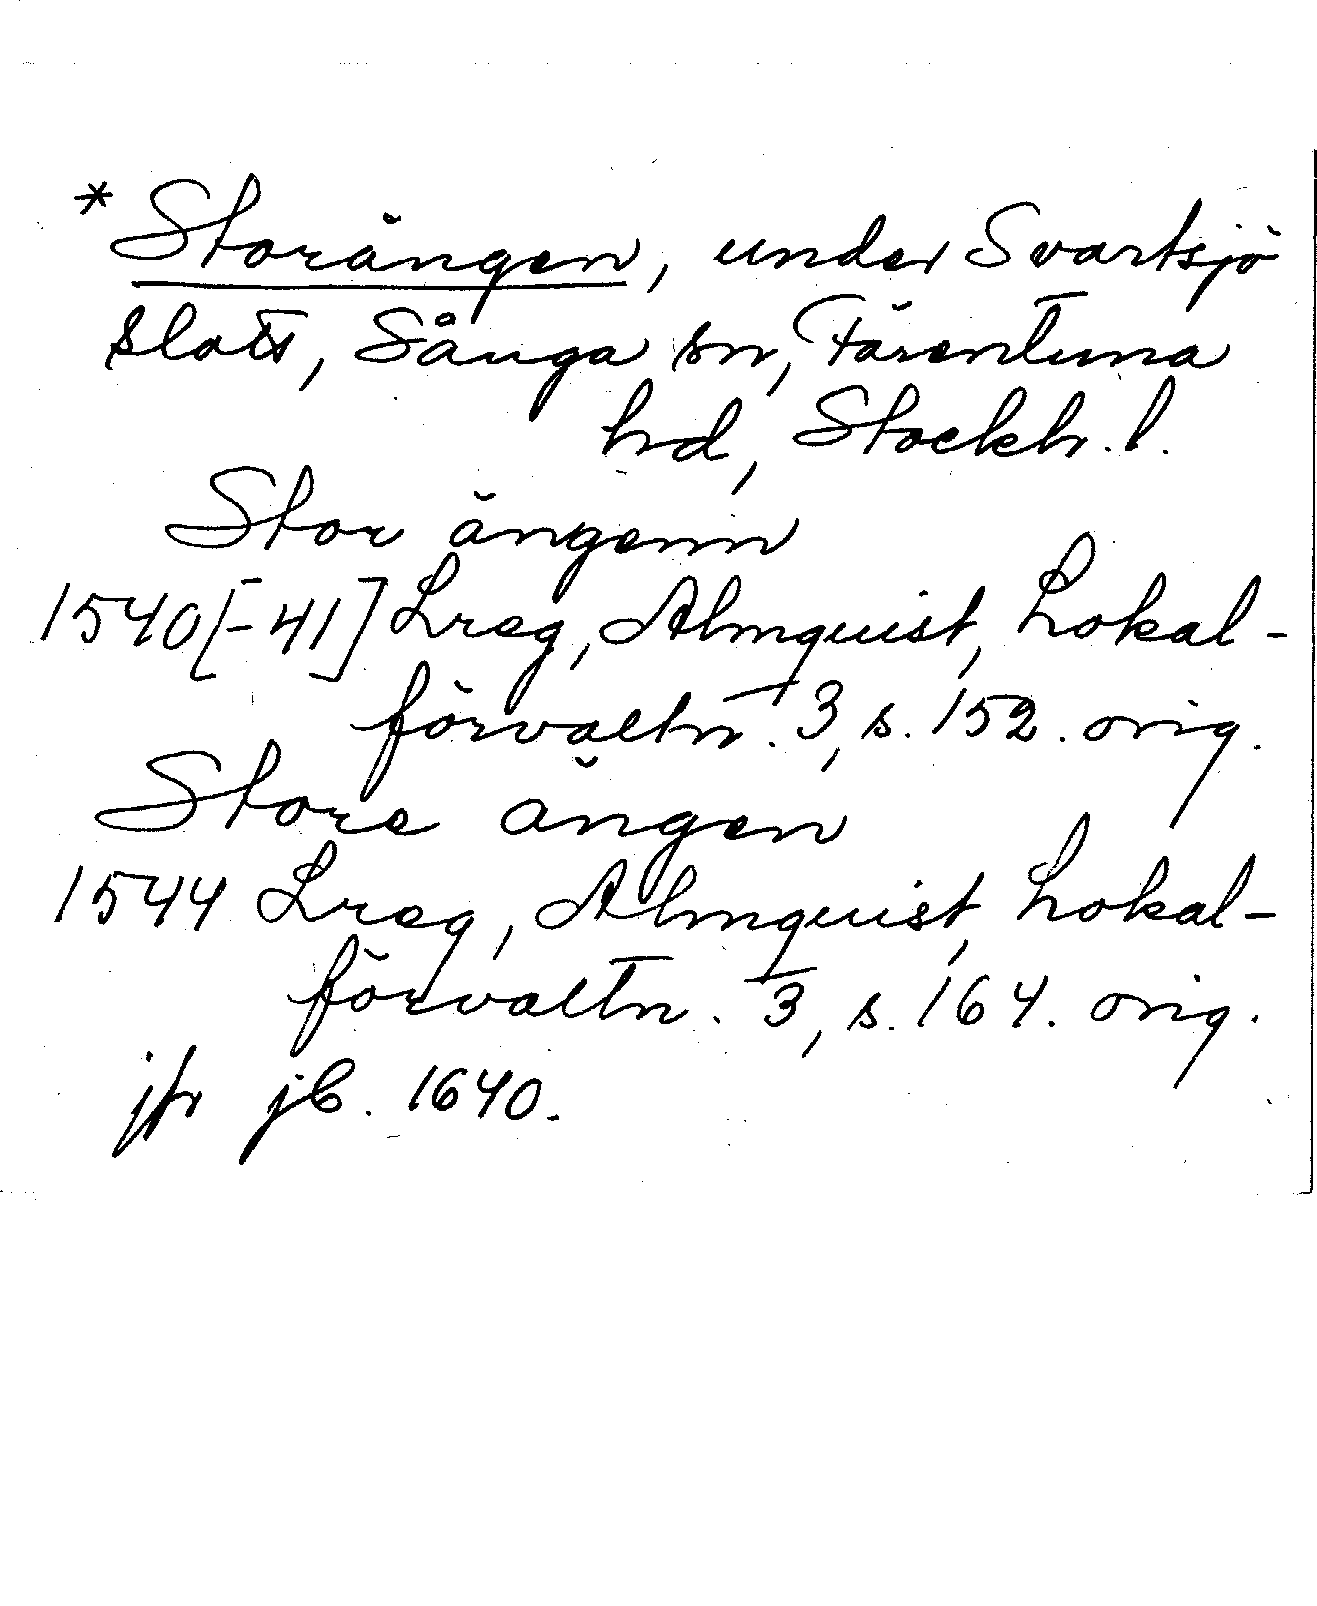 * Storängen, under Svartsjö
slott, Sånga sn, Färentuna
hd, Stockh. l.
Stor ängenn
1540[-41] Lreg, Almquist, Lokal-
förvaltn. 3, s. 152. orig.
Store ängen
1544 Lreg, Almquist, Lokal-
förvaltn. 3, s. 164. orig.
jfr jb. 1640.